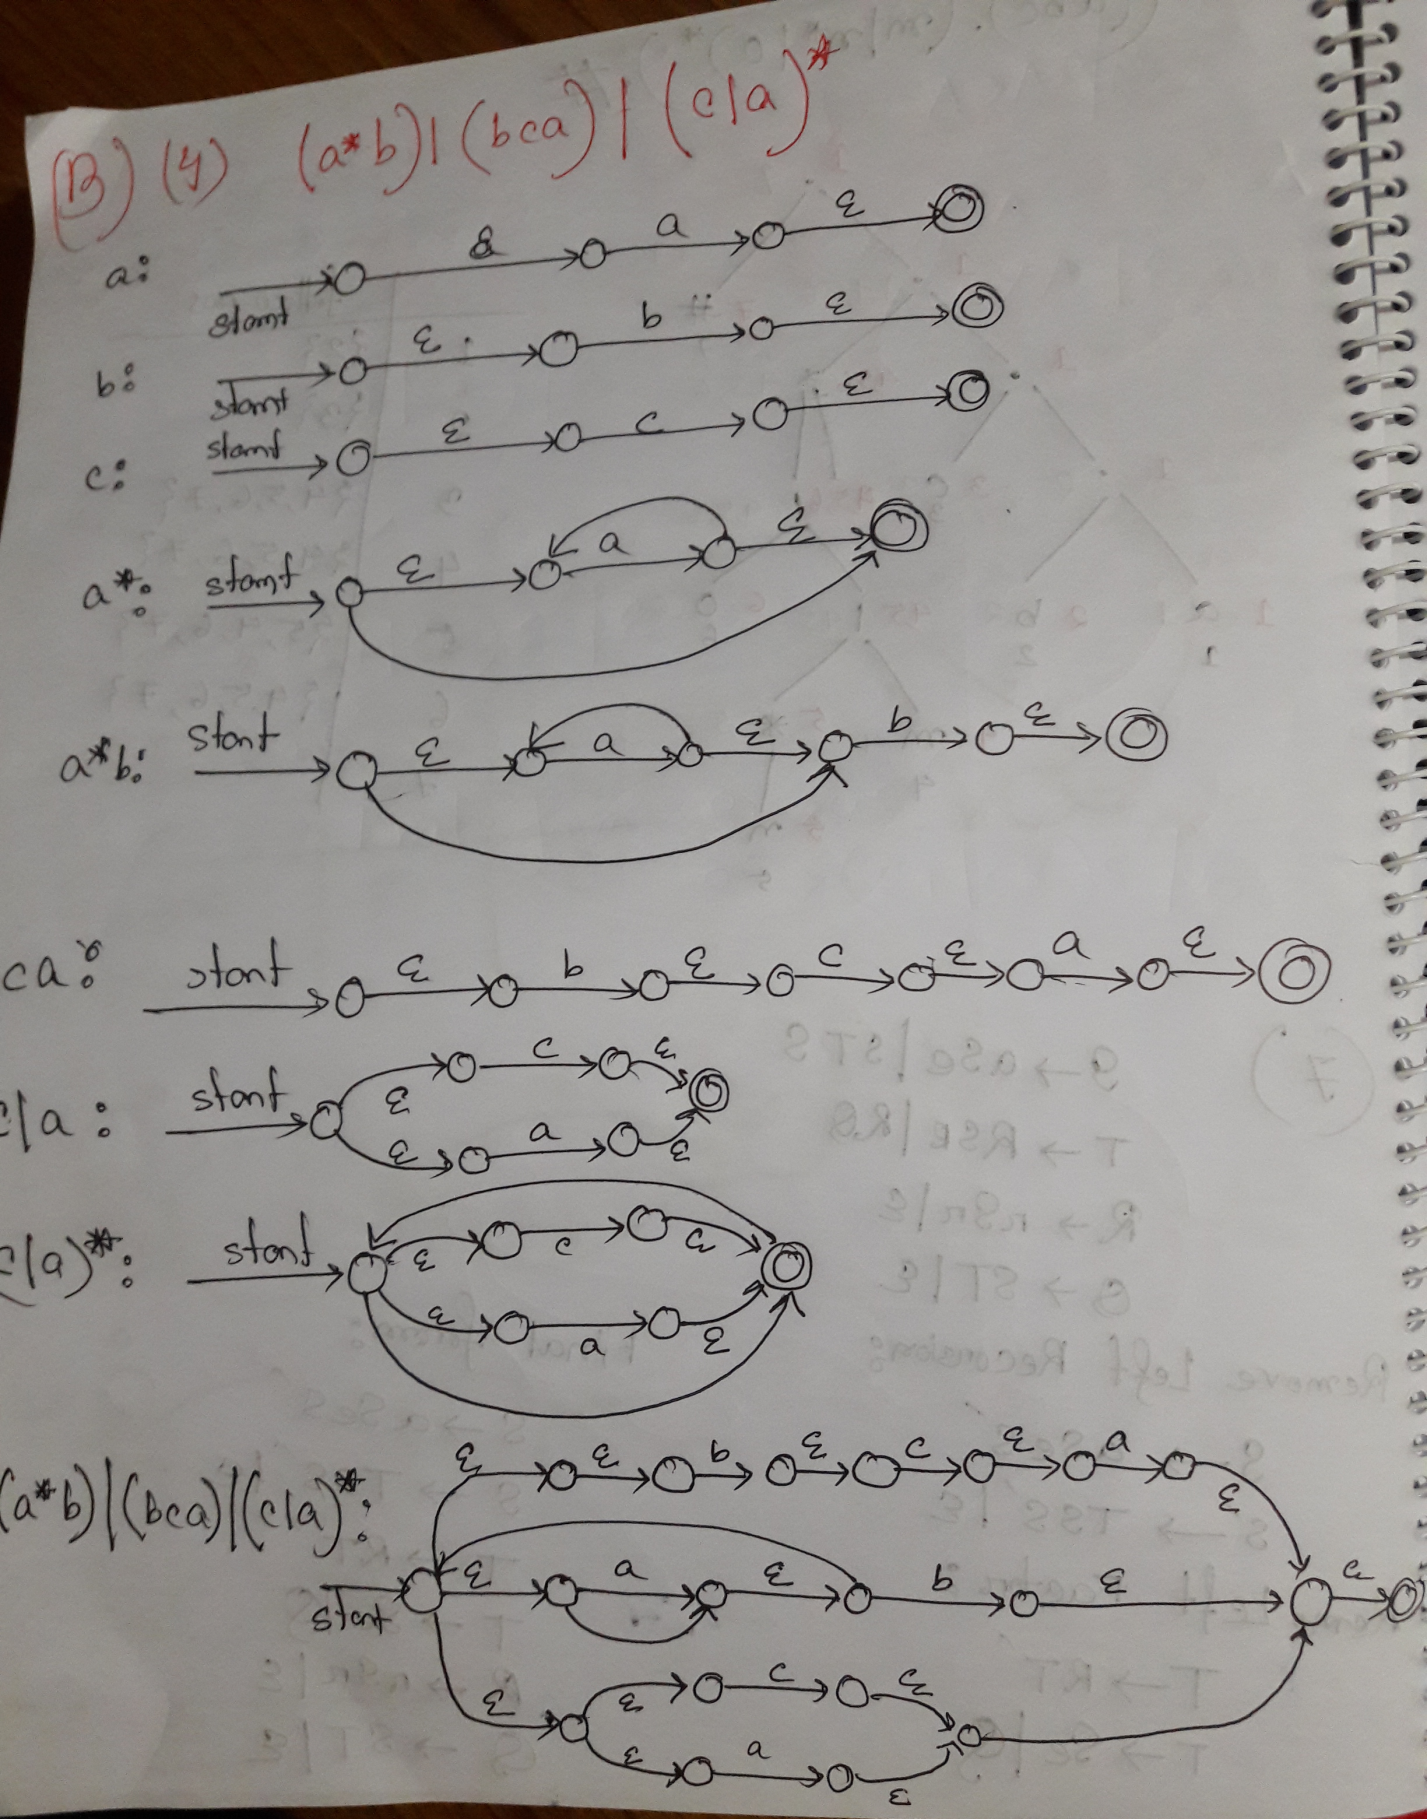 (B) (y) (a*b)|(bca)|(c|a)*
a: start ε a ε
b: start ε b ε
c: start ε c ε
a*: start ε a ε
a*b: start ε a ε b ε
ca: start ε b ε c ε a ε
c|a: start ε c ε
ε a ε
c|a)*: start ε c ε
ε a ε
(a*b)|(bca)|(c|a)*: ε ε b ε c ε a ε
start ε a ε b ε ε
ε ε c ε
ε a ε